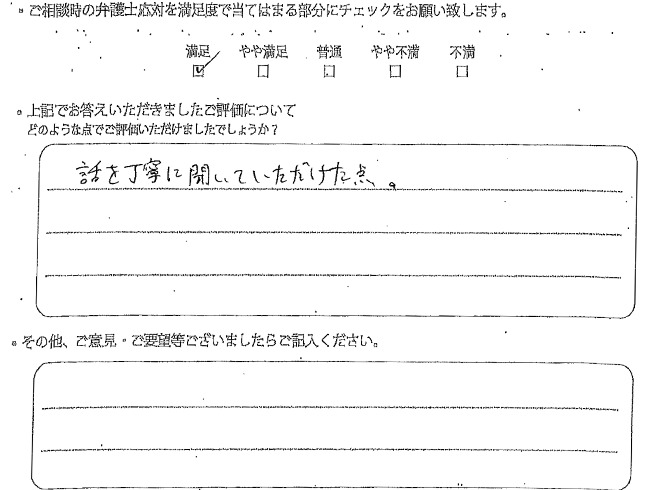 。ご相談時の弁護士応対を満足度で当てはまる部分にチェックをお願い致します。
満足 やや満足 普通 やや不満 不満
☑ □ □ □ □
。上記でお答えいただきましたご評価について
どのような点でご評価いただけましたでしょうか？
話を丁寧に聞いていただけた点。
。その他、ご意見・ご要望等ございましたらご記入ください。